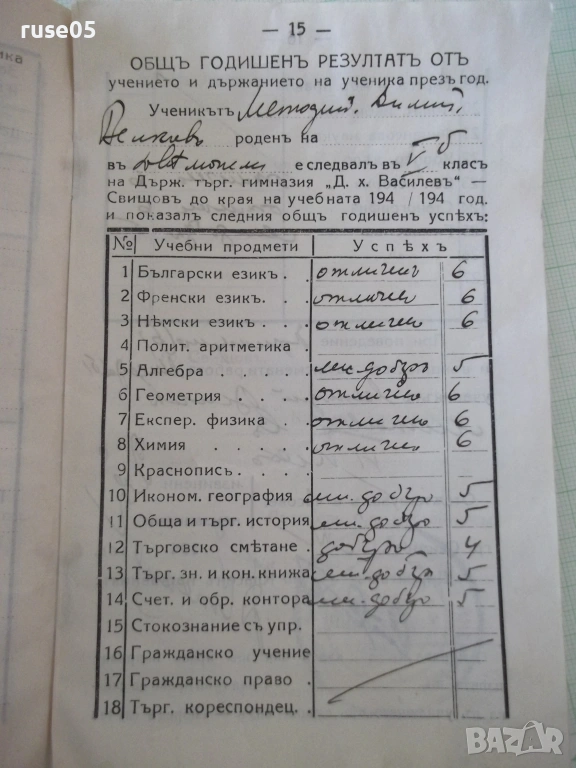 ruse05
— 15 —
ОБЩЪ ГОДИШЕНЪ РЕЗУЛТАТЪ ОТЪ
учението и държанието на ученика презъ год.
Ученикътъ Методий Димит.
Величковъ роденъ на
въ е следвалъ въ V б класъ
на Държ. търг. гимназия „Д. х. Василевъ" —
Свищовъ до края на учебната 194 / 194 год.
и показалъ следния общъ годишенъ успѣхъ:
№ Учебни предмети Успѣхъ
1 Български езикъ . . отличенъ 6
2 Френски езикъ. . . отличенъ 6
3 Нѣмски езикъ . . . отличенъ 6
4 Полит. аритметика .
5 Алгебра . . . . . мн. добъръ 5
6 Геометрия . . . . отличенъ 6
7 Експер. физика . . отличенъ 6
8 Химия . . . . . отличенъ 6
9 Краснописъ. . . .
10 Иконом. география мн. добъръ 5
11 Обща и търг. история мн. добъръ 5
12 Търговско смѣтане . добъръ 4
13 Търг. зн. и кон. книжа мн. добъръ 5
14 Счет. и обр. контора мн. добъръ 5
15 Стокознание съ упр.
16 Гражданско учение
17 Гражданско право .
18 Търг. кореспондец. .
BAZAR